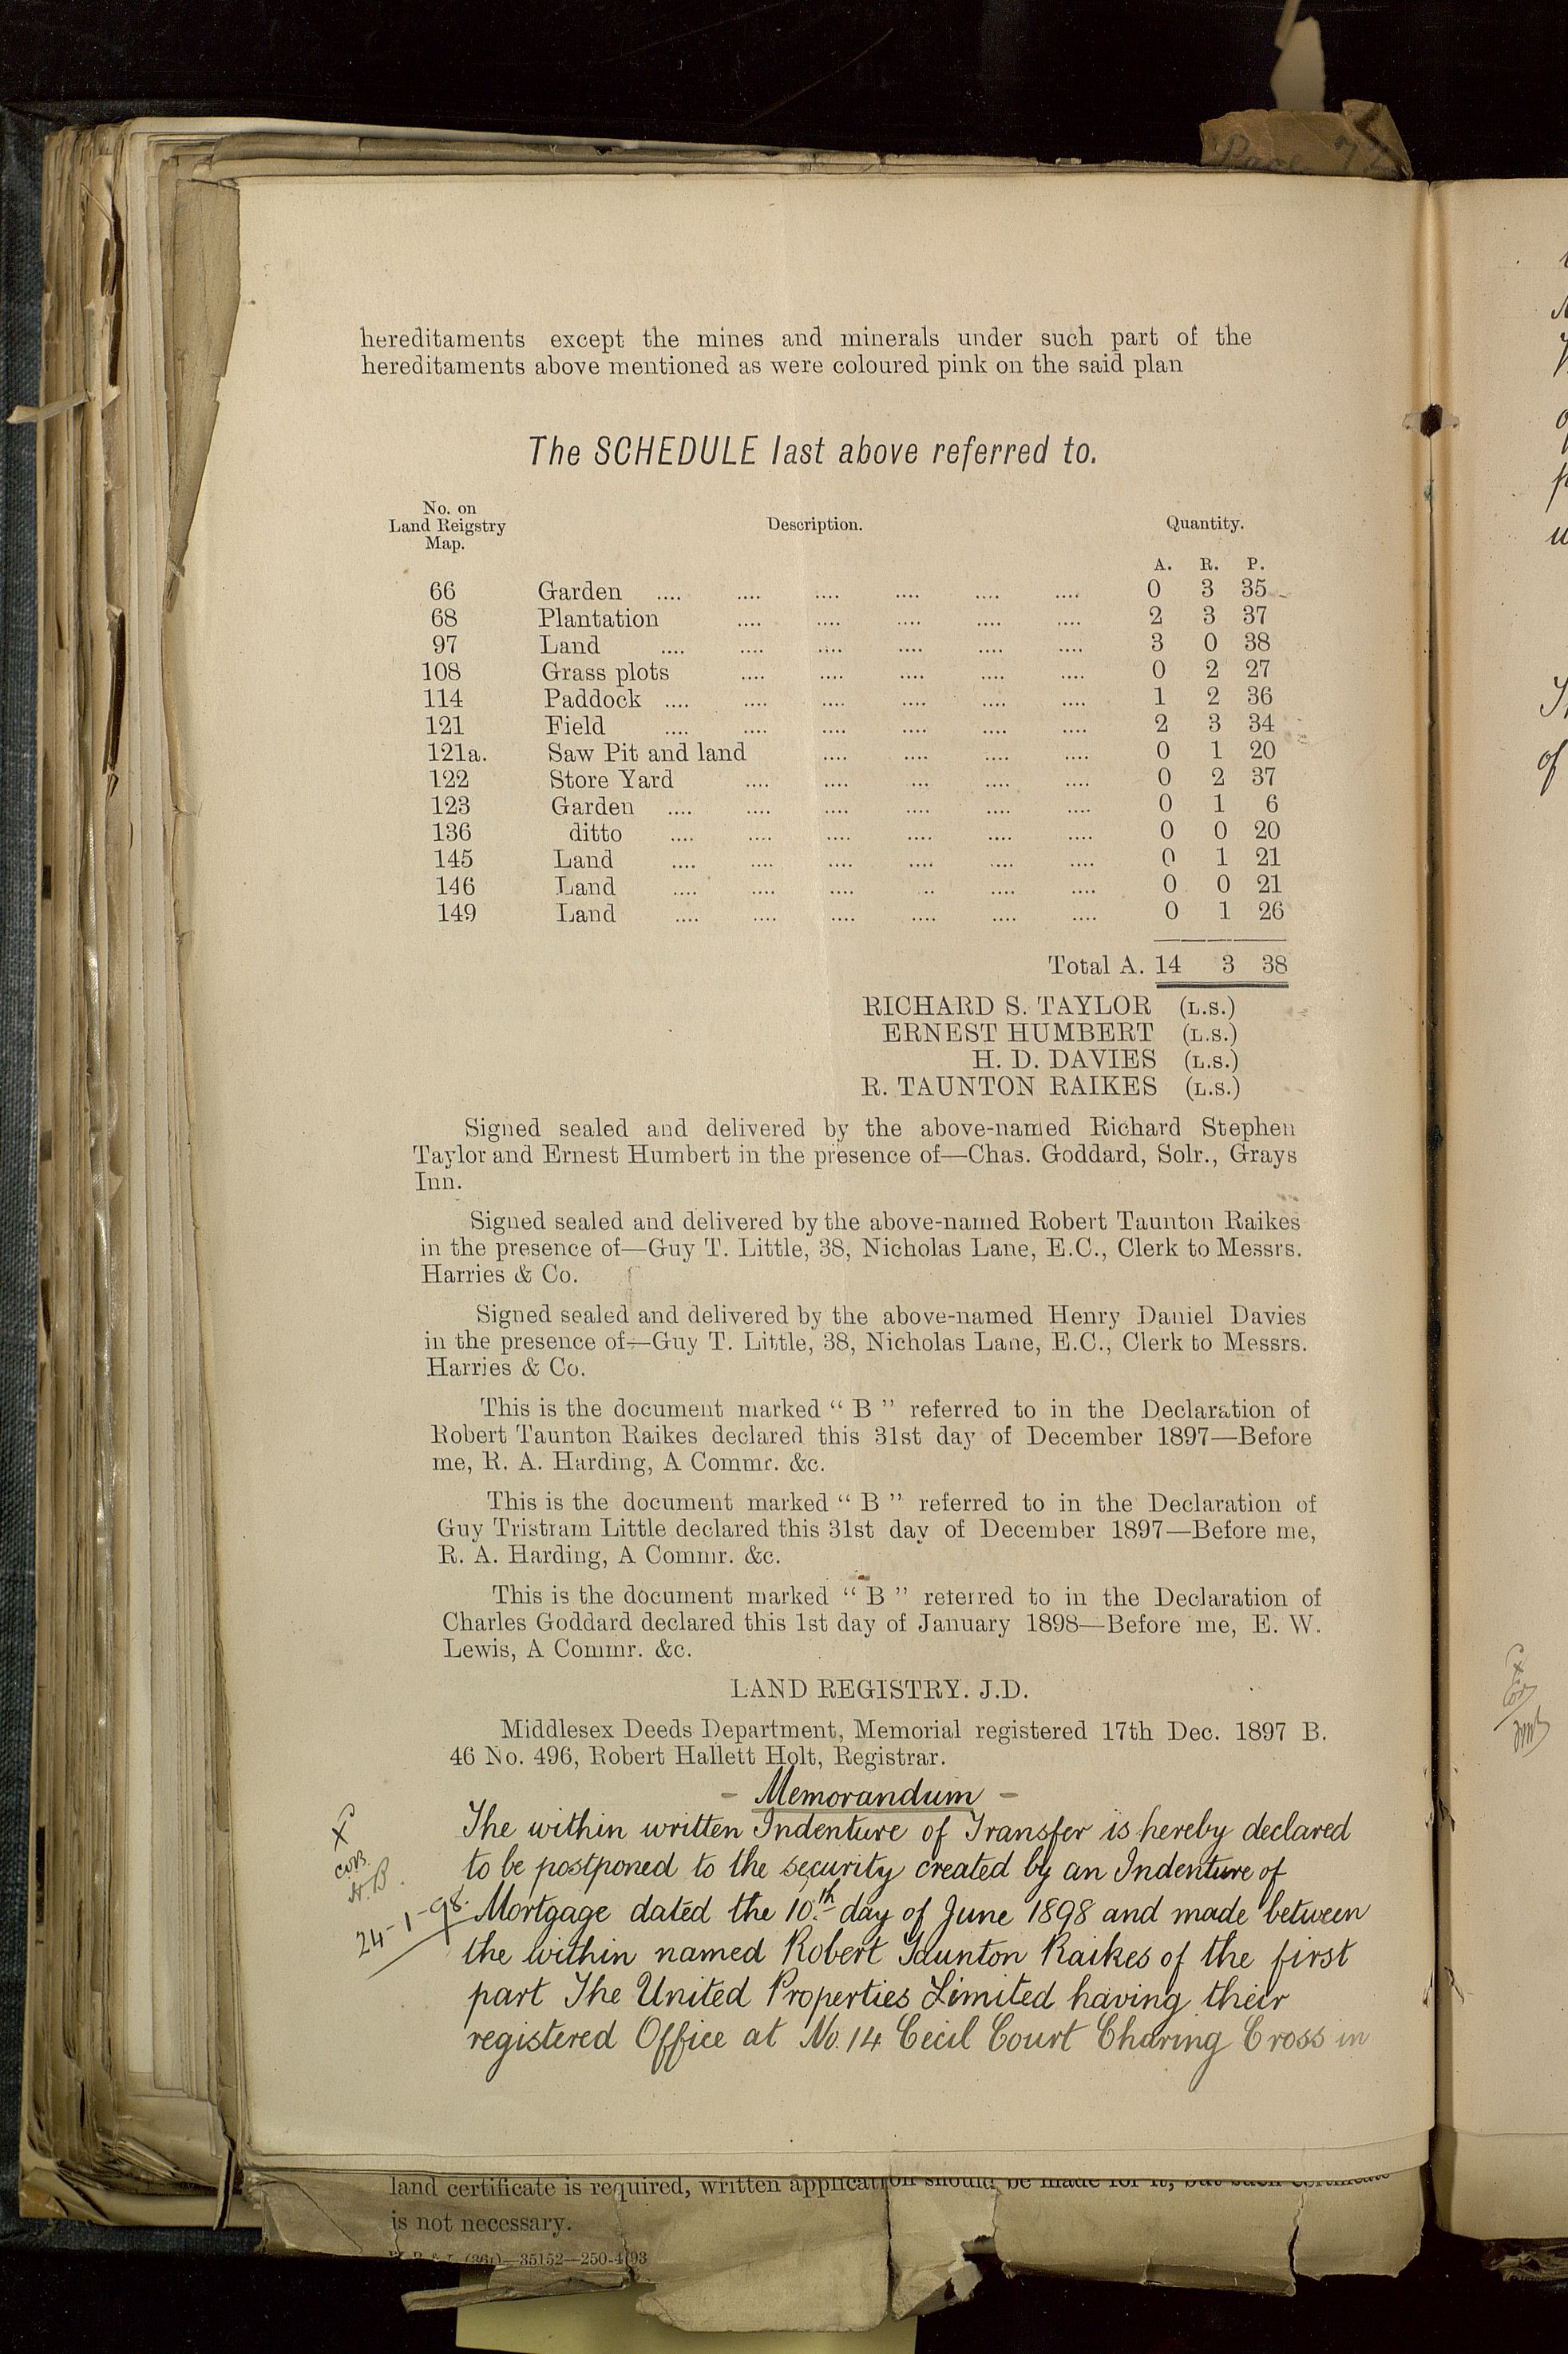 Page 72
hereditaments except the mines and minerals under such part of the
hereditaments above mentioned as were coloured pink on the said plan
The SCHEDULE last above referred to.
No. on
Land Reigstry
Map.
Description.
Quantity.
A. R. P.
66 Garden .... .... .... .... .... .... 0 3 35
68 Plantation .... .... .... .... .... 2 3 37
97 Land .... .... .... .... .... .... 3 0 38
108 Grass plots .... .... .... .... .... 0 2 27
114 Paddock .... .... .... .... .... .... 1 2 36
121 Field .... .... .... .... .... .... 2 3 34
121a. Saw Pit and land .... .... .... .... 0 1 20
122 Store Yard .... .... ... .... .... 0 2 37
123 Garden .... .... .... .... .... .... 0 1 6
136 ditto .... .... .... .... .... .... 0 0 20
145 Land .... .... .... .... .... .... 0 1 21
146 Land .... .... .... .. .... .... 0 0 21
149 Land .... .... .... .... .... .... 0 1 26
Total A. 14 3 38
RICHARD S. TAYLOR (L.S.)
ERNEST HUMBERT (L.S.)
H. D. DAVIES (L.S.)
R. TAUNTON RAIKES (L.S.)
Signed sealed and delivered by the above-named Richard Stephen
Taylor and Ernest Humbert in the presence of—Chas. Goddard, Solr., Grays
Inn.
Signed sealed and delivered by the above-named Robert Taunton Raikes
in the presence of—Guy T. Little, 38, Nicholas Lane, E.C., Clerk to Messrs.
Harries & Co.
Signed sealed and delivered by the above-named Henry Daniel Davies
in the presence of—Guy T. Little, 38, Nicholas Lane, E.C., Clerk to Messrs.
Harries & Co.
This is the document marked “ B ” referred to in the Declaration of
Robert Taunton Raikes declared this 31st day of December 1897—Before
me, R. A. Harding, A Commr. &c.
This is the document marked “ B ” referred to in the Declaration of
Guy Tristram Little declared this 31st day of December 1897—Before me,
R. A. Harding, A Commr. &c.
This is the document marked “ B ” referred to in the Declaration of
Charles Goddard declared this 1st day of January 1898—Before me, E. W.
Lewis, A Commr. &c.
LAND REGISTRY. J.D.
Middlesex Deeds Department, Memorial registered 17th Dec. 1897 B.
46 No. 496, Robert Hallett Holt, Registrar.
- Memorandum -
The within written Indenture of Transfer is hereby declared
to be postponed to the security created by an Indenture of
Mortgage dated the 10th day of June 1898 and made between
the within named Robert Taunton Raikes of the first
part The United Properties Limited having their
registered Office at No. 14 Cecil Court Charing Cross in
24-1-98
land certificate is required, written application should be made for it, but such certificate
is not necessary.
35152—250-4/93
of